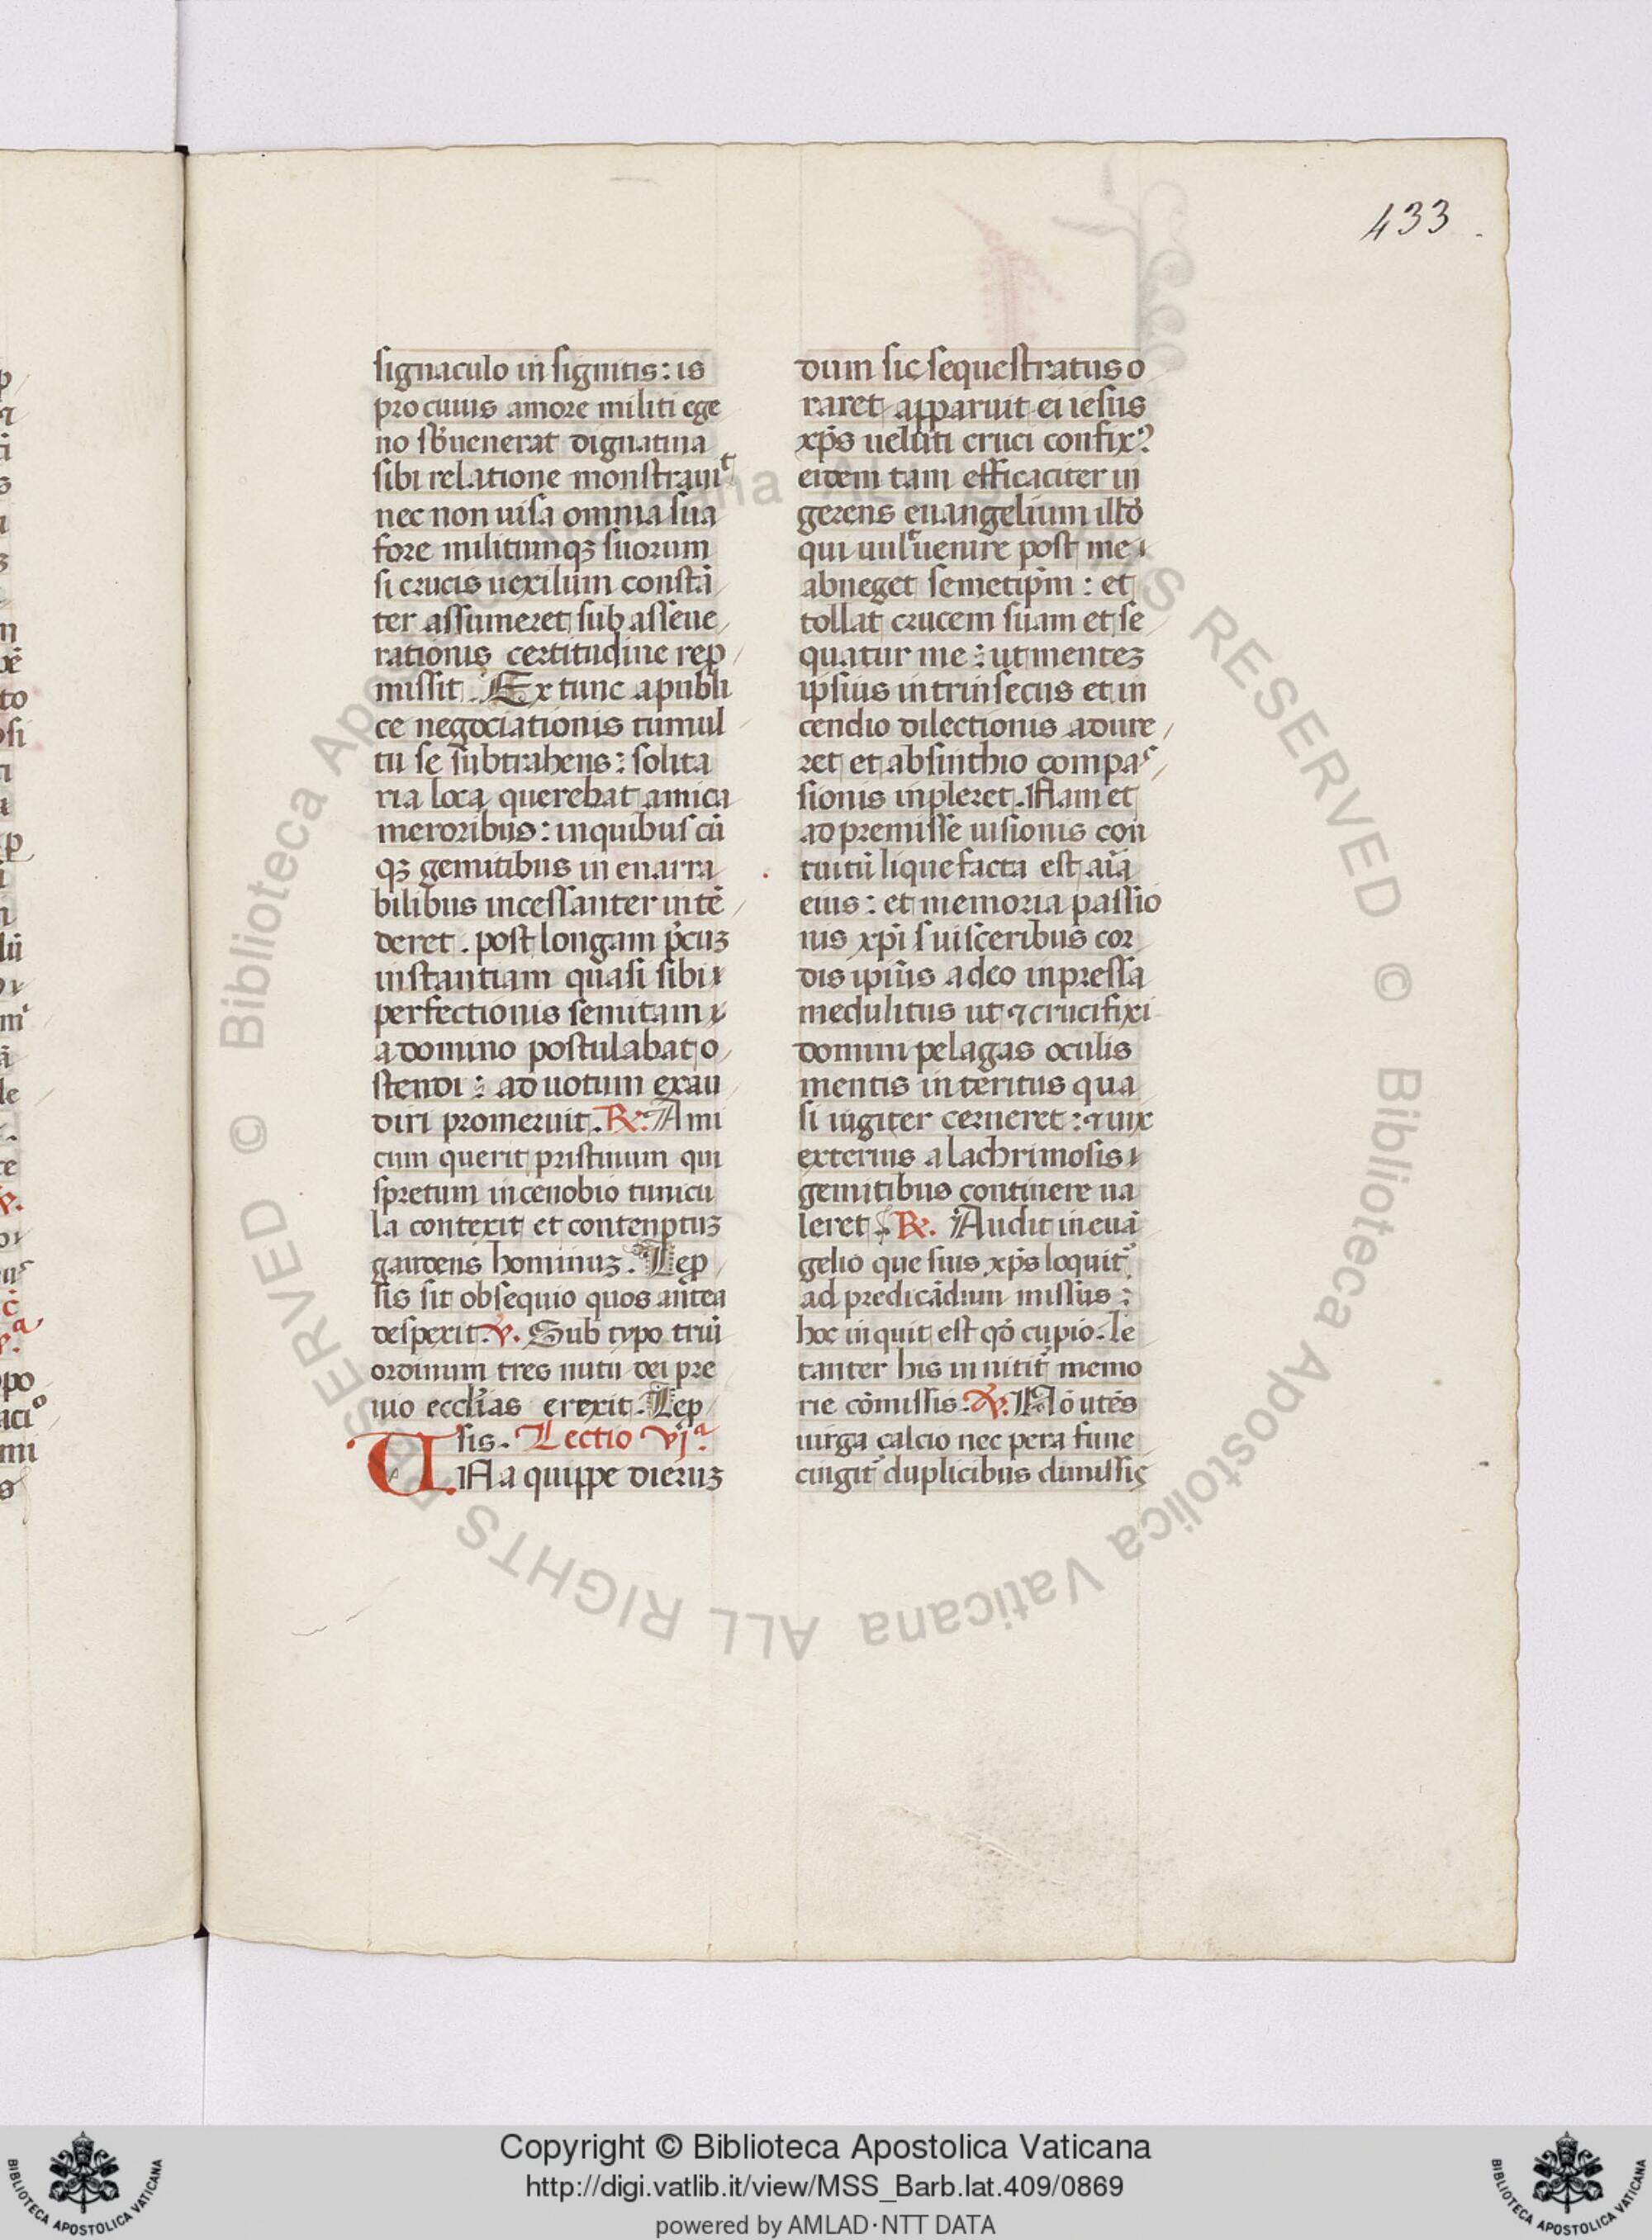 433
signaculo in signitis: is
pro cuius amore militi ege
no sb̓uenerat dignatiua
sibi relatione monstrauit
nec non uisa omnia sua
fore militumqꝫ suorum
si crucis uexilum constã
ter assumeret sub asseue
rationis certitudine rep
missit. Ex tunc a publi
ce negociationis tumul
tu se subtrahens: solita
ria loca querebat amica
meroribus: in quibus cũ
qꝫ gemitibus in enarra
bilibus incessanter intẽ
deret. post longam p̃cuꝫ
instantiam quasi sibi
perfectionis semitam
a domino postulabat o
stendi: ad uotum exau
diri promeruit. ℟. Ami
cum querit pristinum qui
spretum in cenobio tunicu
la contexit et contenptuꝫ
gaudens hominuꝫ. Lep
sis sit obsequio quos antea
despexit. ℣. Sub typo triũ
ordinum tres nutu dei pre
uio ecclias erexit. Lep
sis. Lectio vjᵃ.
UNa quippe dieruꝫ
dum sic sequestratus o
raret apparuit ei iesus
xp̃s ueluti cruci confixꝰ
eidem tam efficaciter in
gerens euangelium illud
qui uult uenire post me
abneget semetip̃m: et
tollat crucem suam et se
quatur me: ut menteꝫ
ipsius intrinsecus et in
cendio dilectionis adure
ret et absinthio compas
sionis inpleret. Nam et
ad premisse uisionis con
tuitũ liquefacta est aĩa
eius: et memoria passio
nis xp̃i suisceribus cor
dis ipiũs adeo inpressa
medulitus ut ⁊ crucifixi
domini pelagas oculis
mentis interitus qua
si iugiter cerneret: ⁊ uix
exterius a lachrimosis
gemitibus continere ua
leret. ℟. Audit in euã
gelio que suis xp̃s loquit᷑
ad predicãdum missus:
hoc in quit est qđ cupio. le
tanter his innitit᷑ memo
rie cõmissis. ℣. Nõ utẽs
uirga calcio nec pera fune
cingit᷑ duplicibus dimissis
Copyright © Biblioteca Apostolica Vaticana
http://digi.vatlib.it/view/MSS_Barb.lat.409/0869
powered by AMLAD·NTT DATA
© Biblioteca Apostolica Vaticana ALL RIGHTS RESERVED
© Biblioteca Apostolica Vaticana ALL RIGHTS RESERVED
BIBLIOTECA APOSTOLICA VATICANA
BIBLIOTECA APOSTOLICA VATICANA